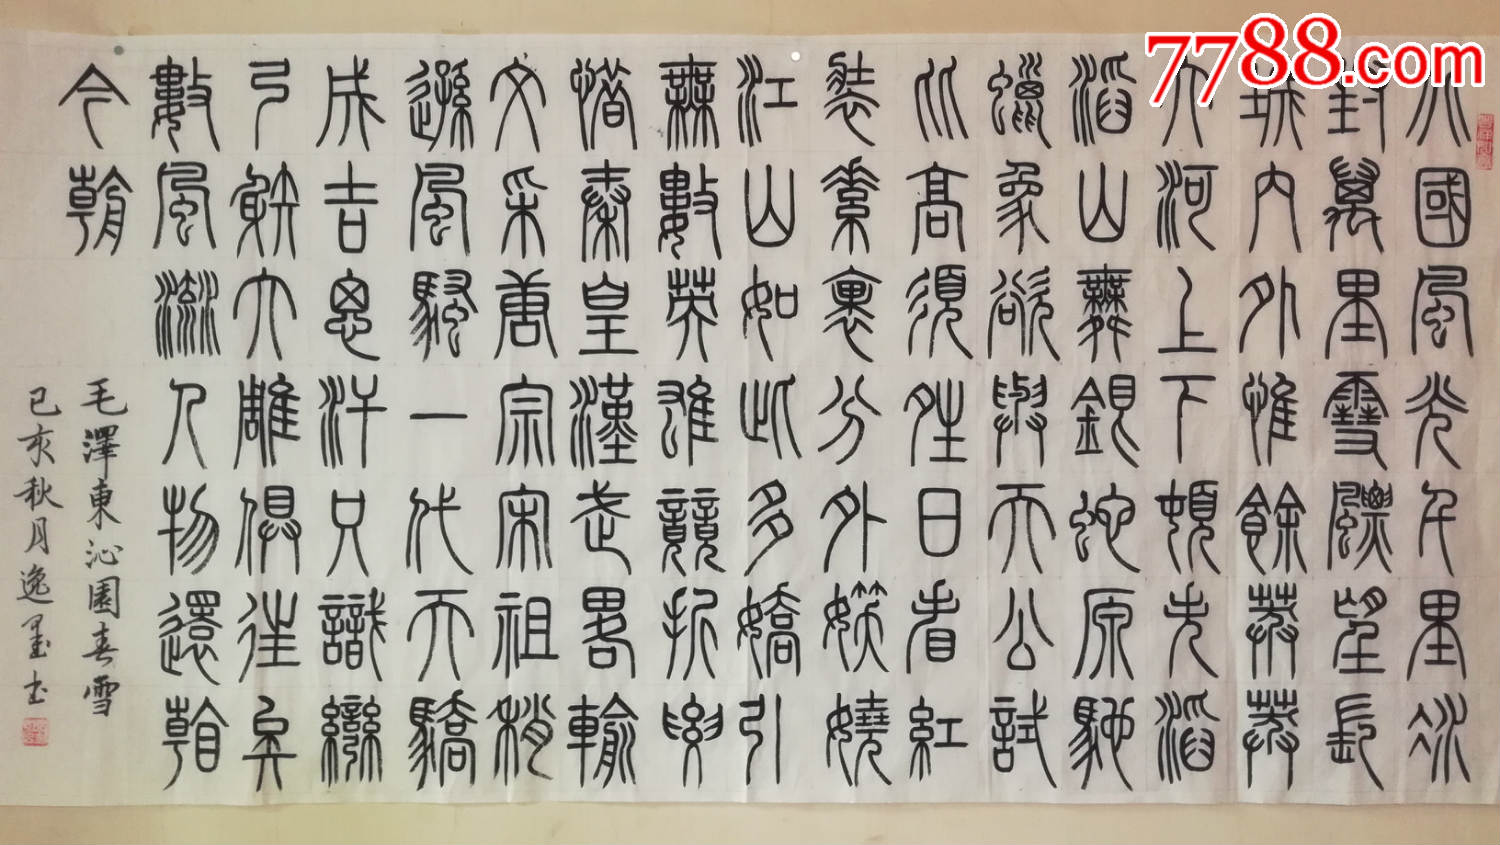 7788.com
北國風光千里冰
封萬里雪飄望長
城內外惟餘莽莽
大河上下頓失滔
滔山舞銀蛇原馳
蠟象欲與天公試
比高須晴日看紅
裝素裹分外妖嬈
江山如此多嬌引
無數英雄競折腰
惜秦皇漢武略輸
文采唐宗宋祖稍
遜風騷一代天驕
成吉思汗只識彎
弓射大雕俱往矣
數風流人物還看
今朝
毛澤東沁園春雪
己亥秋月逸墨书